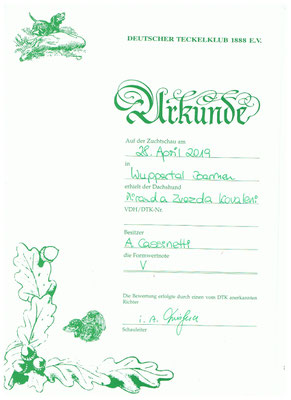 DEUTSCHER TECKELKLUB 1888 E.V.
Urkunde
Auf der Zuchtschau am
28. April 2019
in
Wuppertal Barmen
erhielt der Dachshund
Miranda Zvezda Kovaleni
VDH/DTK-Nr
Besitzer
A Cassinetti
die Formwertnote
V
Die Bewertung erfolgte durch einen vom DTK anerkannten
Richter
i. A.
Schauleiter